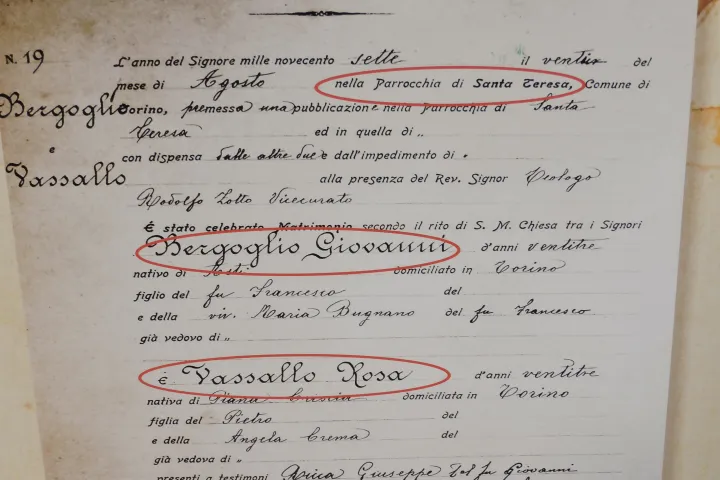 N. 19
L'anno del Signore mille novecento sette il del
mese di Agosto nella Parrocchia di Santa Teresa, Comune di
Bergoglio
Torino, premessa una pubblicazione nella Parrocchia di Santa
Teresa ed in quella di „
e
con dispensa dalle altre due e dall'impedimento di „
Vassallo
alla presenza del Rev. Signor Teologo
Rodolfo Zotto Vicecurato
È stato celebrato Matrimonio secondo il rito di S. M. Chiesa tra i Signori
Bergoglio Giovanni d'anni ventitre
nativo di Asti domiciliato in Torino
figlio del fu Francesco del
e della viv. Maria Bugnano del fu Francesco
già vedovo di „
È Vassallo Rosa d'anni ventitre
nativa di Piana domiciliata in Torino
figlia del Pietro del
e della Angela Crema del
già vedova di „
presenti a testimoni Giuseppe del fu Giovanni